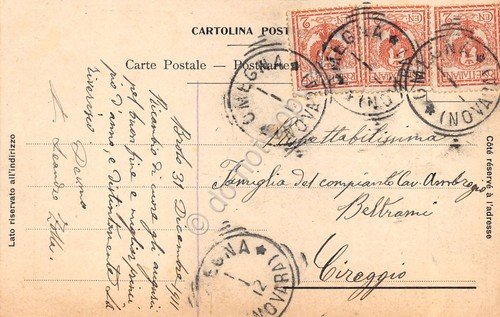 CARTOLINA POST
Carte Postale - Postkarte
CENT. 2
OMEGNA
(NOVARA)
OMEGNA
(NOVARA)
OMEGNA
(NOVARA)
Lato riservato all'indirizzo
Côté réservé à l'adresse
Brolo 31 Dicembre 1911
Ricambio di cuore gli auguri
pel buon fine e miglior princi
pio d'anno e distintamente La
riverisco.
Leandro
Spettabilissima
Famiglia del compianto Cav. Ambrogio
Beltrami
Cireggio
OMEGNA
1 1 12
(NOVARA)